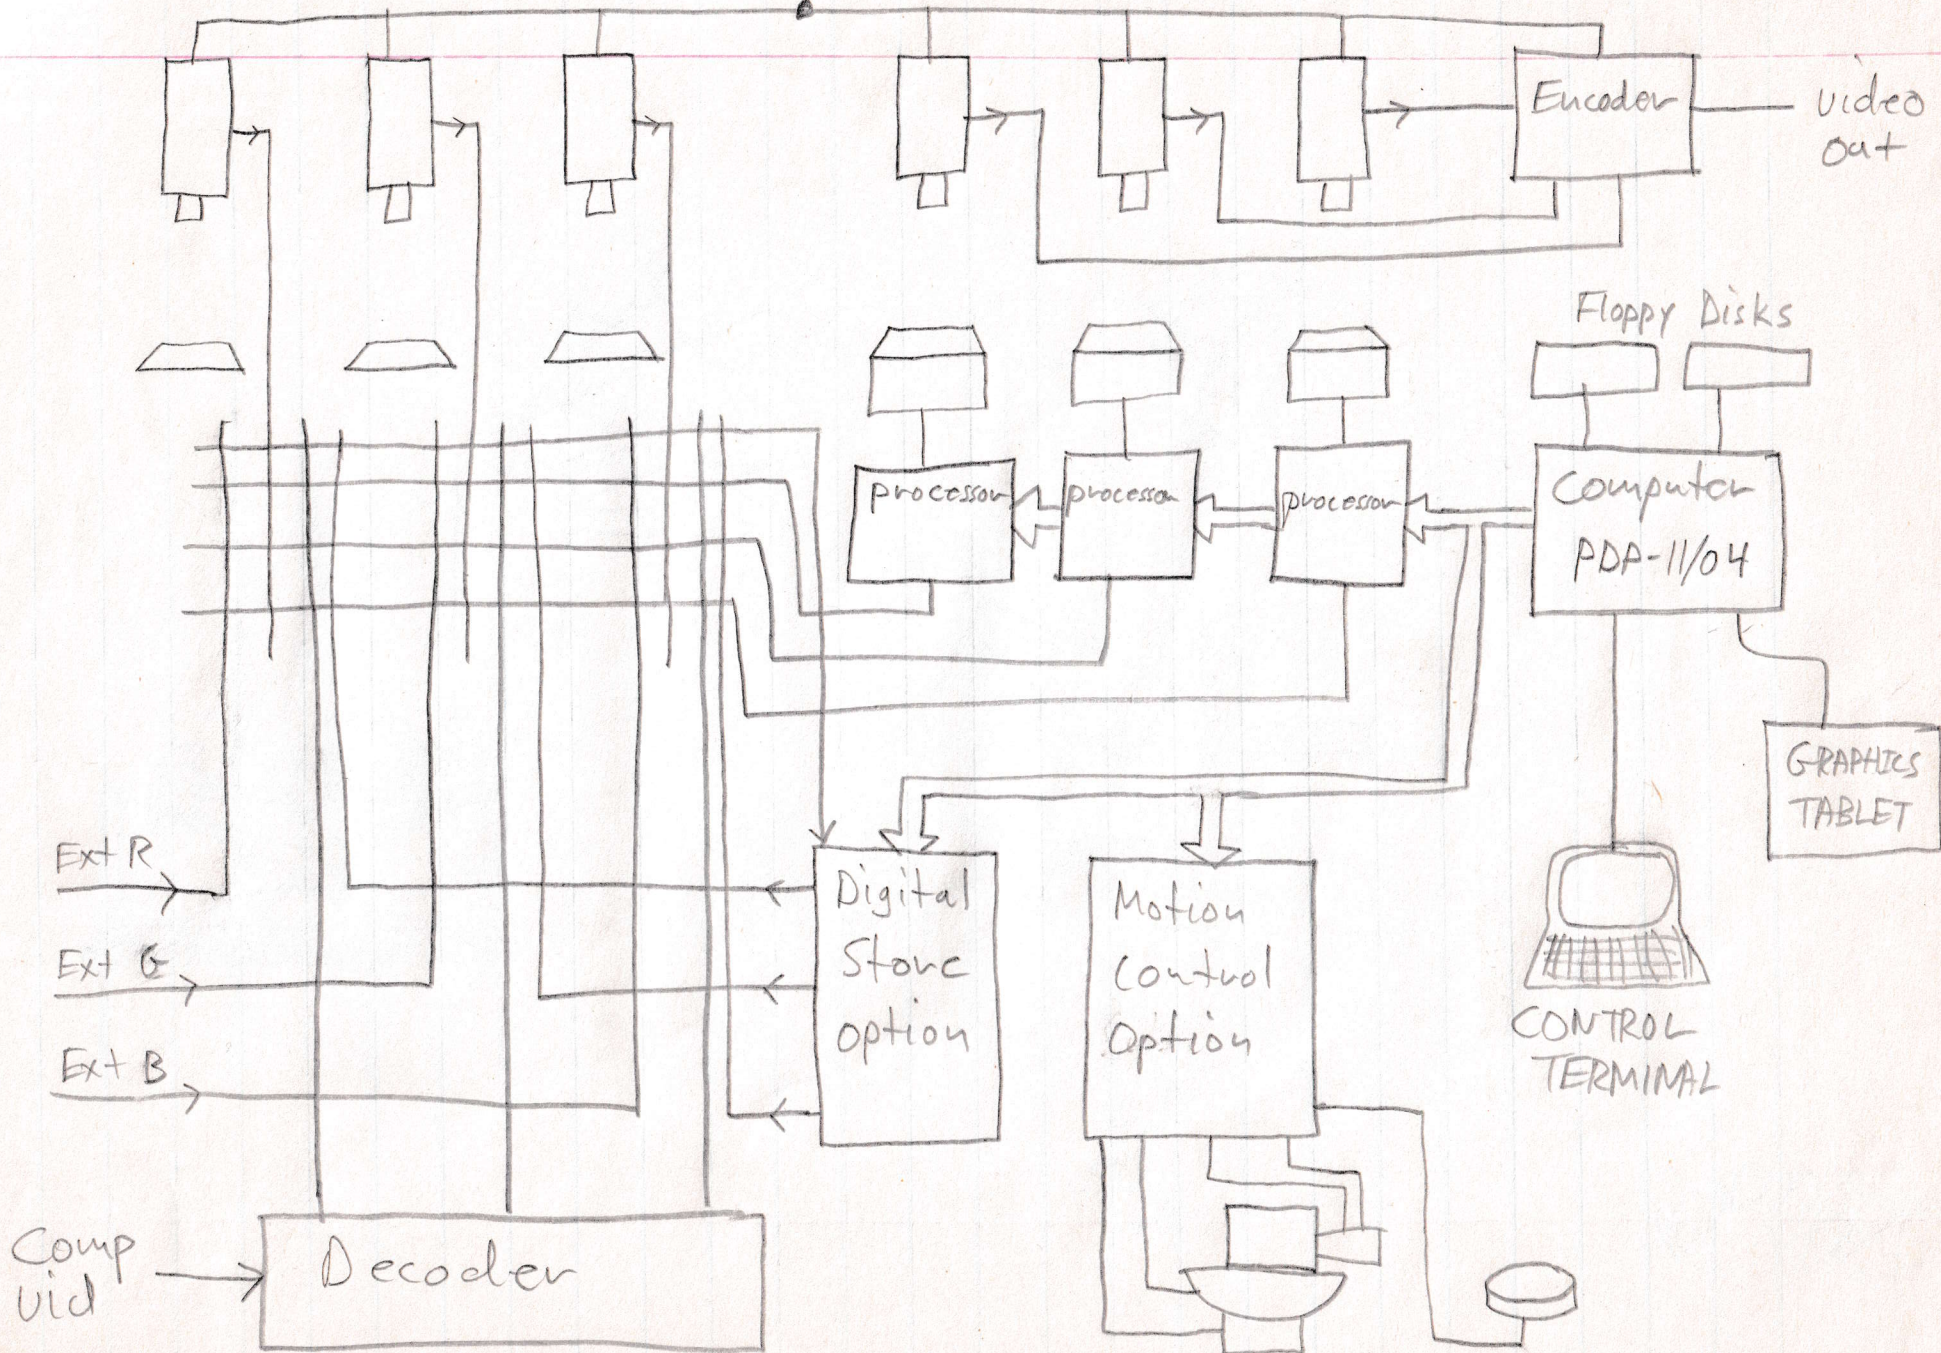 Encoder
video
out
Floppy Disks
processor
processor
processor
Computer
PDP-11/04
GRAPHICS
TABLET
Ext R
Ext G
Ext B
Digital
Store
option
Motion
Control
Option
CONTROL
TERMINAL
Comp
vid
Decoder